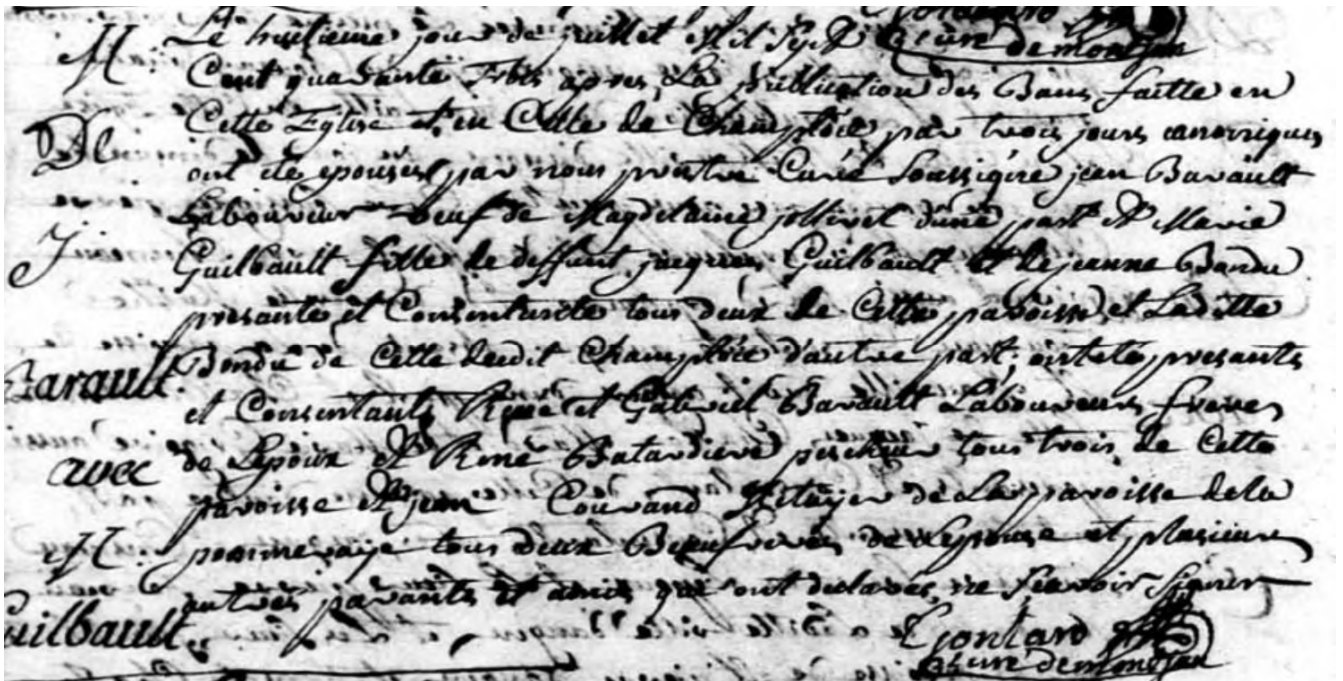 M
De
J
Barault
avec
M
Guilbault
curé de montjan
Le huitieme jour de juillet Mil Sept
Cent quarante trois apres La publication des Bans faitte en
Cette Eglise et en Celle de Champtocé par trois jours canoniques
ont été epousés par nous prestre Curé Soussigné jean Barault
Laboureur veuf de Magdelaine jollivet d'une part et Marie
Guilbault fille de deffunt jacques Guilbault et de jeanne Bondu
presante et Consentante tous deux de Cette paroisse et Laditte
Bondu de Celle dudit Champtocé d'autre part, ont été presants
et Consentants René et Gabriel Barault Laboureurs freres
de Lepoux et René Batardiere pescheur tous trois de Cette
paroisse et jean Courand Metayer de La paroisse de la
pommeraye tous deux Beaufreres de Lepouse et plusieurs
autres parants et amis qui ont declarés ne Scavoir Signer
curé de montjan